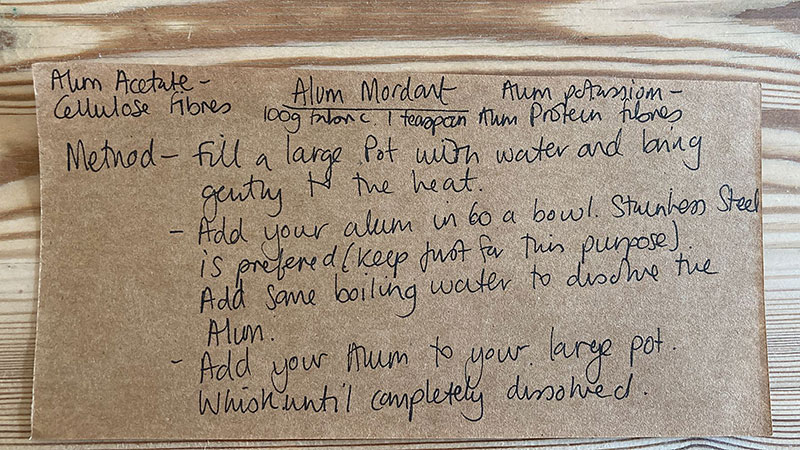 Alum Acetate -
Cellulose Fibres
Alum Mordant
100g fabric 1 teaspoon Alum
Alum potassium -
Protein fibres
Method - Fill a large Pot with water and bring
gently to the heat.
- Add your alum in to a bowl. Stainless Steel
is prefered (keep just for this purpose).
Add some boiling water to dissolve the
Alum.
- Add your Alum to your large pot.
Whisk until completely dissolved.